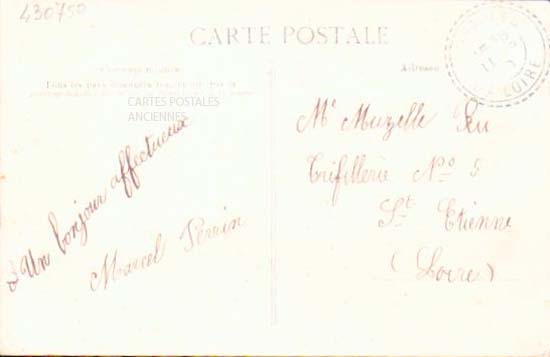 430750
CARTE POSTALE
Tous les pays étrangers
Adresse
CARTES POSTALES
ANCIENNES
LOIRE
Un bonjour affectueux
Marcel Perrin
Mr Muzelle
Trefillerie No 5
St Etienne
(Loire)